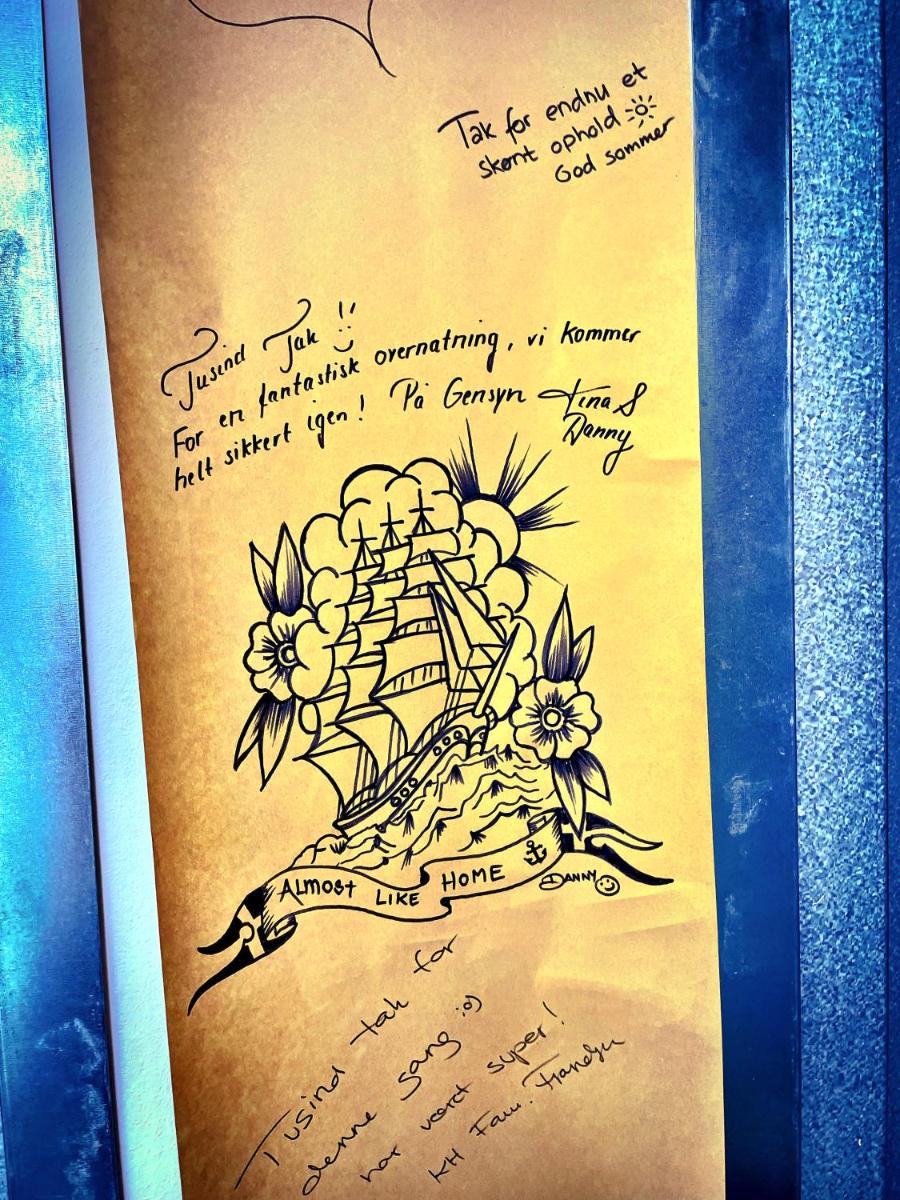 Tak for endnu et
skønt ophold
God sommer
Tusind Tak !!
For en fantastisk overnatning, vi kommer
helt sikkert igen! På Gensyn Tina &
Danny
ALMOST LIKE HOME
DANNY
Tusind tak for
denne gang :o)
har været super!
KH Fam. Frandsen